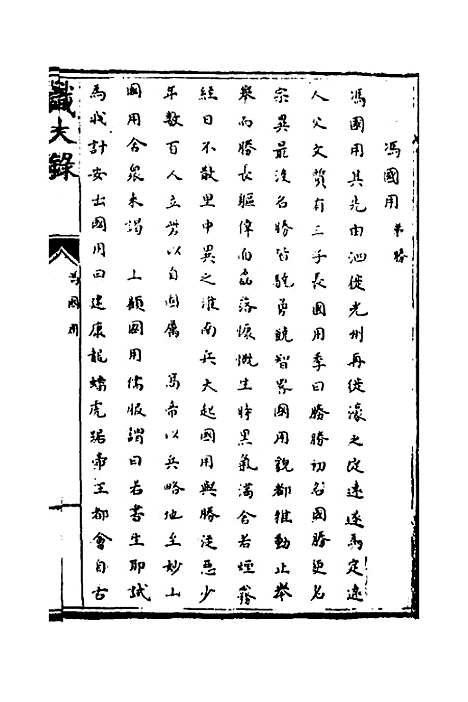 馮國用 弟勝
馮國用其先由泗徙光州再徙濠之定遠遂為定遠
人父文質有三子長國用季曰勝勝初名國勝更名
宗異最後名勝皆驍勇競智畧國用貌都雅動止舉
舉而勝長軀偉面磊落慷慨生時黑氣滿舍若煙霧
經日不散里中異之淮南兵大起國用與勝從惡少
年數百人立砦以自固屬 高帝以兵略地至妙山
國用合衆來謁 上顧國用儒服謂曰若書生耶試
為我計安出國用曰建康龍蟠虎踞帝王都會自古
國用